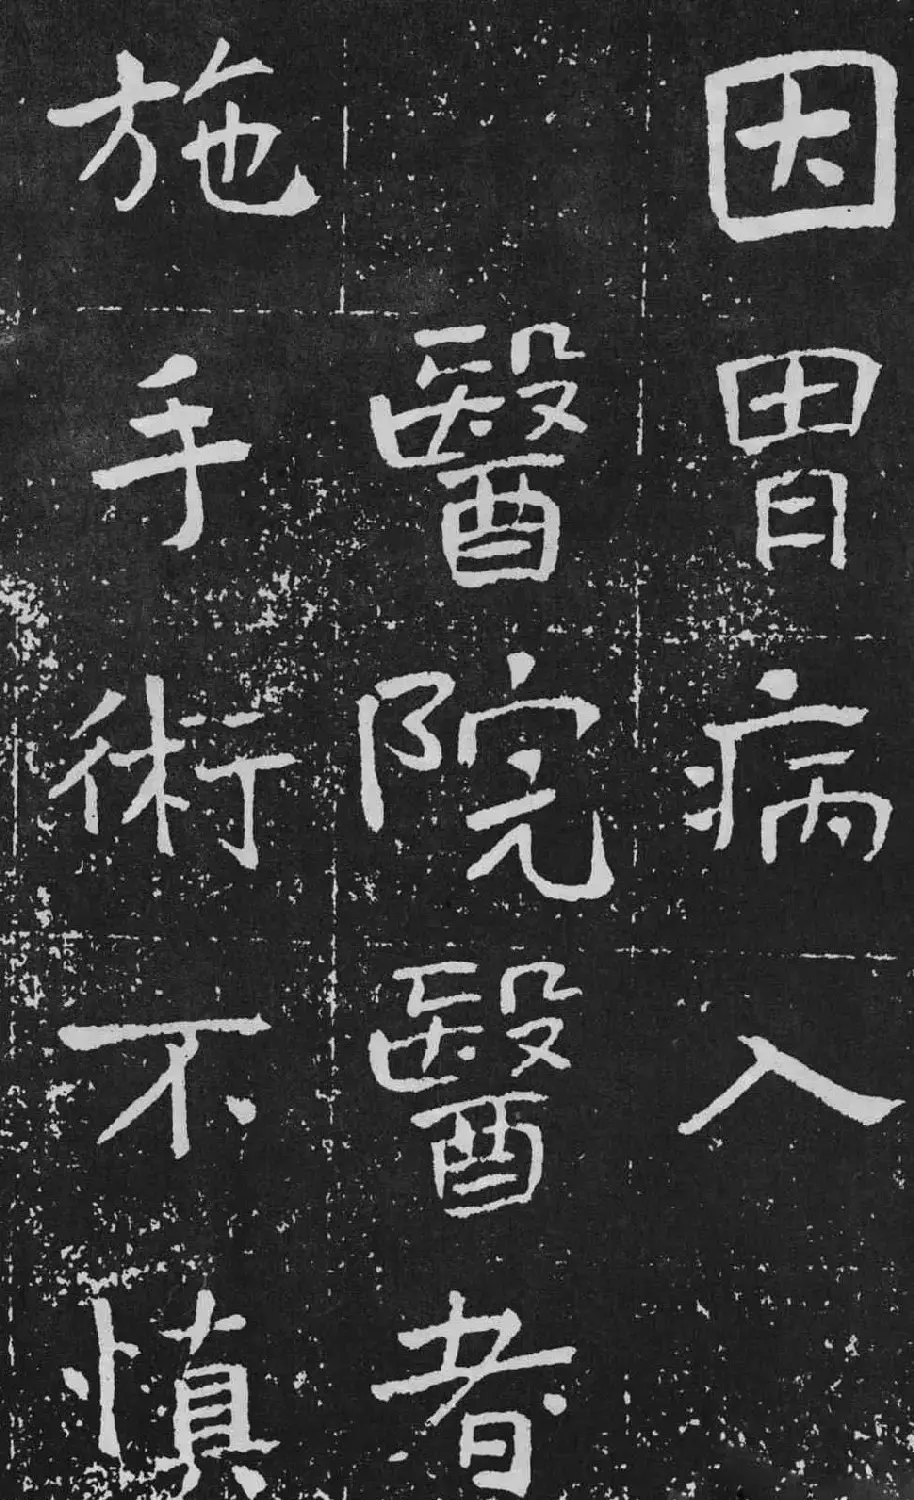 因胃病入
醫院醫者
施手術不慎